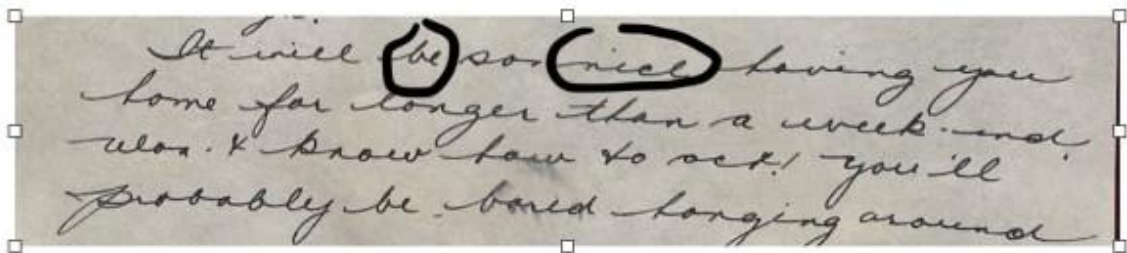 It will be son nice having you
home for longer than a week-end.
Won't know how to act! You'll
probably be bored hanging around